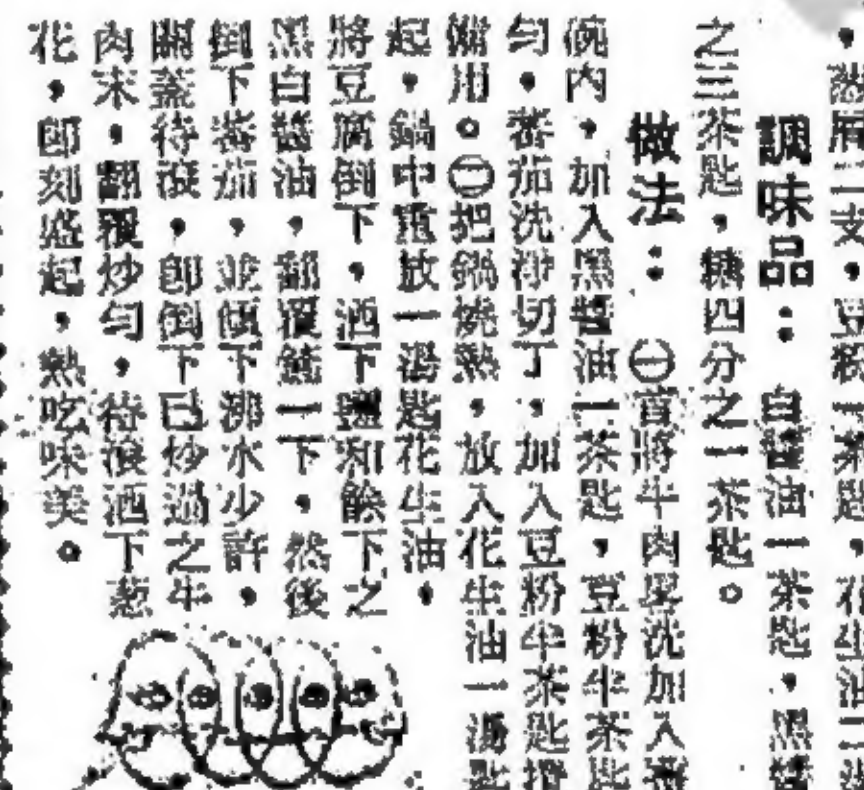 ，葱屑二支，豆粉一茶匙，花生油二湯
調味品：白醬油一茶匙，黑醬
之三茶匙，糖四分之一茶匙。
做法：㊀首將牛肉剁洗加入
碗內，加入黑醬油一茶匙，豆粉半茶匙
勻，蕃茄洗淨切丁，加入豆粉半茶匙攪
備用。㊁把鍋燒熱，放入花生油一湯匙
起，鍋中重放一湯匙花生油，
將豆腐倒下，洒下鹽和餘下之
黑白醬油，翻覆燒一下，然後
倒下蕃茄，並傾下沸水少許，
關蓋待滾，即倒下已炒過之牛
肉末，翻覆炒勻，待滾洒下葱
花，即刻盛起，熱吃味美。